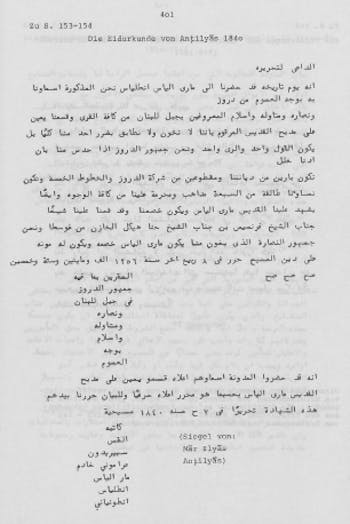 401
Zu S. 153-154
Die Eidurkunde von Anṭilyās 1840
الداعي لتحريره
انه يوم تاريخه قد حضرنا الى ماري الياس انطلياس نحن المذكورة اسماونا
به بوجه العموم من دروز
ونصاره ومتاوله واسلام المعروفين بجبل لبنان من كافة القرى وقسمنا يمين
على مذبح القديس المرقوم باننا لا نخون ولا نطابق بضرر احد منا كليًا بل
يكون القول واحد والرى واحد ونحن جمهور الدروز اذا حدس منا بان
ادنا خلل
نكون بارين من ديانتنا ومقطوعين من شركة الدروز والخطوط الخمسة وتكون
نساونا طالقة من السبعة مذاهب ومحرمة علينا من كافة الوجوه وايضًا
يشهد علينا القديس ماري الياس ويكون خصمنا وقد قمنا علينا شيخًا
جناب الشيخ فرنسيس بن جناب الشيخ حنا هيكل الخازن من غوسطا ونحن
جمهور النصارة الذي يخون منا يكون ماري الياس خصمه ويكون له موته
على دين المسيح حرر في ٨ ربيع اخر سنة ١٢٥٦ الف وماتين وستة وخمسين
صح صح صح
المقربين بما فيه
جمهور الدروز
في جبل لبنان
ونصاره
ومتاوله
واسلام
بوجه
العموم
انه قد حضروا المدونة اسماوهم اعلاه قسمو يمين على مذبح
القديس ماري الياس بحسبما هو محرر اعلاه حرفيًا وللبيان حررنا بيدهم
هذه الشهادة تحريرًا في ٧ ح سنة ١٨٤٠ مسيحية
كاتبه
القس
سبيريدون
عراموني خادم
مار الياس
انطلياس
انطونياني
(Siegel von:
Mār Ilyās
Anṭilyās)